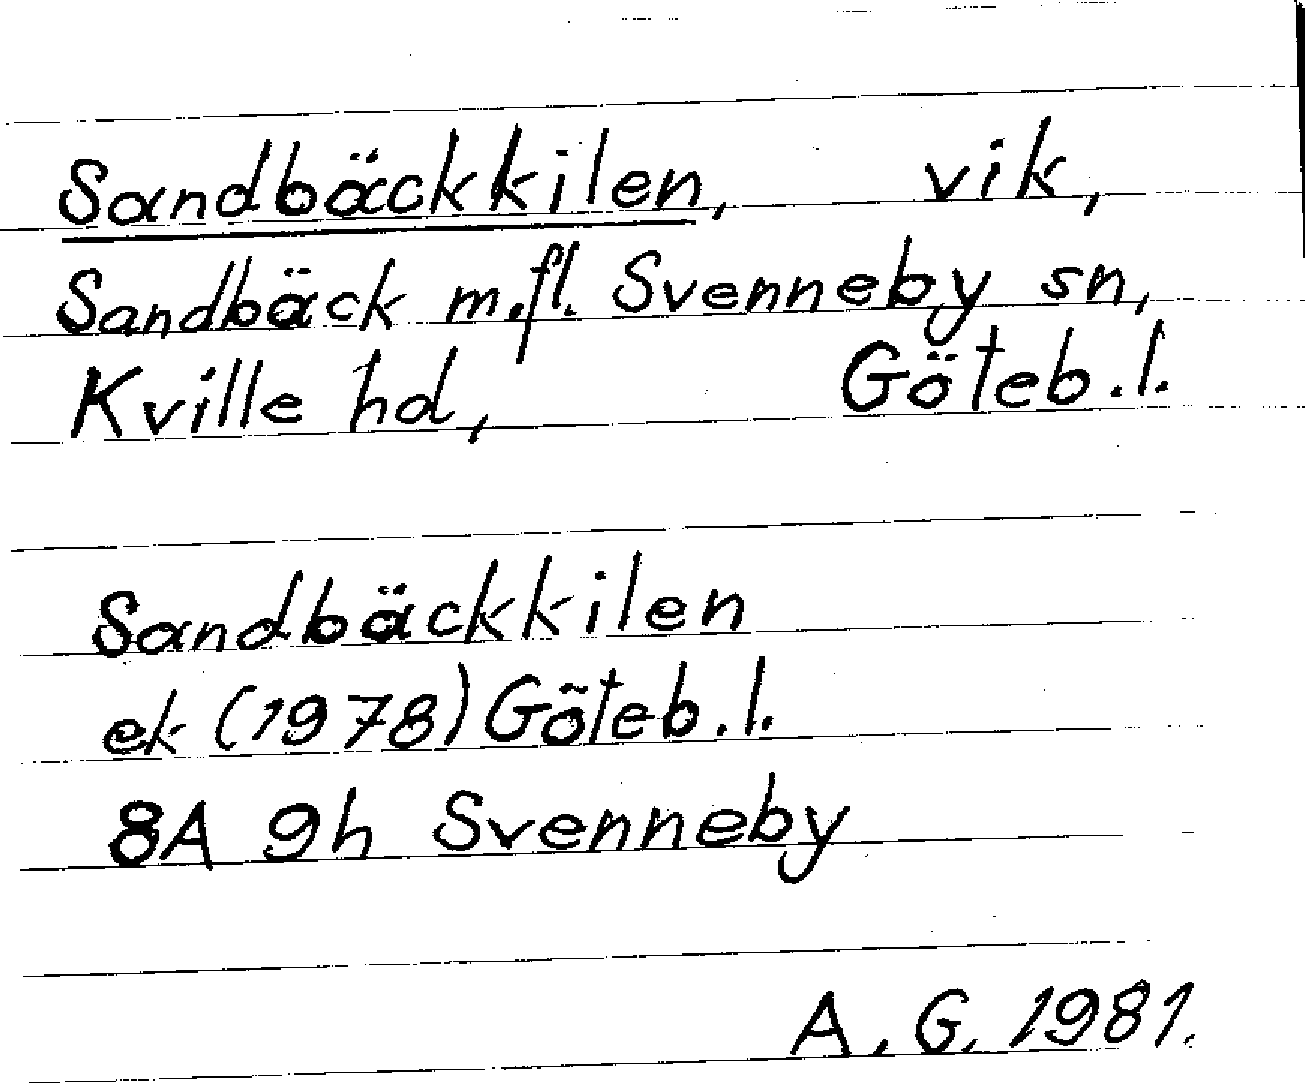 Sandbäckkilen, vik,
Sandbäck m.fl. Svenneby sn,
Kville hd, Göteb.l.
Sandbäckkilen
ek (1978) Göteb.l.
8A 9h Svenneby
A.G. 1981.